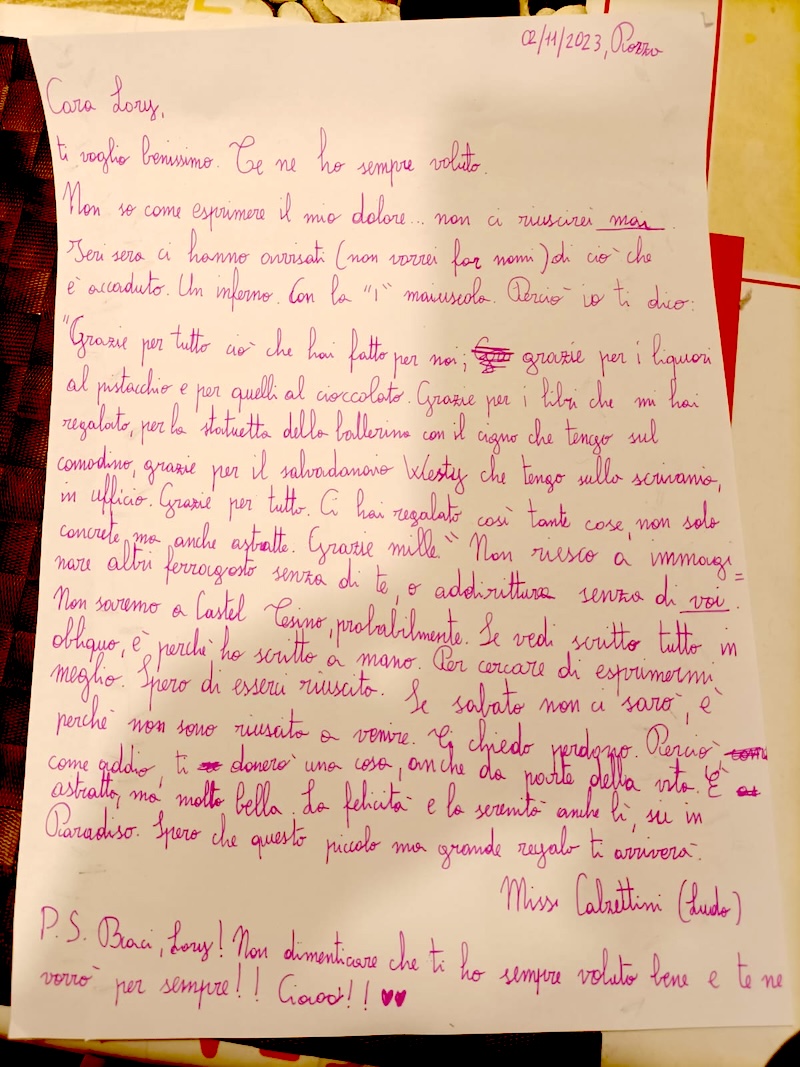 02/11/2023, Pozzo
Cara Lory,
ti voglio benissimo. Te ne ho sempre voluto.
Non so come esprimere il mio dolore... non ci riuscirei mai.
Ieri sera ci hanno avvisati (non vorrei far nomi) di ciò che
è accaduto. Un inferno. Con la "I" maiuscola. Perciò io ti dico:
"Grazie per tutto ciò che hai fatto per noi; grazie per i liquori
al pistacchio e per quelli al cioccolato. Grazie per i libri che mi hai
regalato, per la statuetta della ballerina con il cigno che tengo sul
comodino, grazie per il salvadanaio Westy che tengo sulla scrivania,
in ufficio. Grazie per tutto. Ci hai regalato così tante cose, non solo
concrete, ma anche astratte. Grazie mille." Non riesco a immagi=
nare altri ferragosto senza di te, o addirittura senza di voi.
Non saremo a Castel Tesino, probabilmente. Se vedi scritto tutto in
obliquo, è perché ho scritto a mano. Per cercare di esprimermi
meglio. Spero di esserci riuscita. Se sabato non ci sarò, è
perché non sono riuscita a venire. Ti chiedo perdono. Perciò,
come addio, ti donerò una cosa, anche da parte della vita. È
astratto, ma molto bella. La felicità e la serenità anche lì, su in
Paradiso. Spero che questo piccolo ma grande regalo ti arriverà.
Missi Calzettini (Ludo)
P.S. Baci, Lory! Non dimenticare che ti ho sempre voluto bene e te ne
vorrò per sempre!! Ciaoo!!